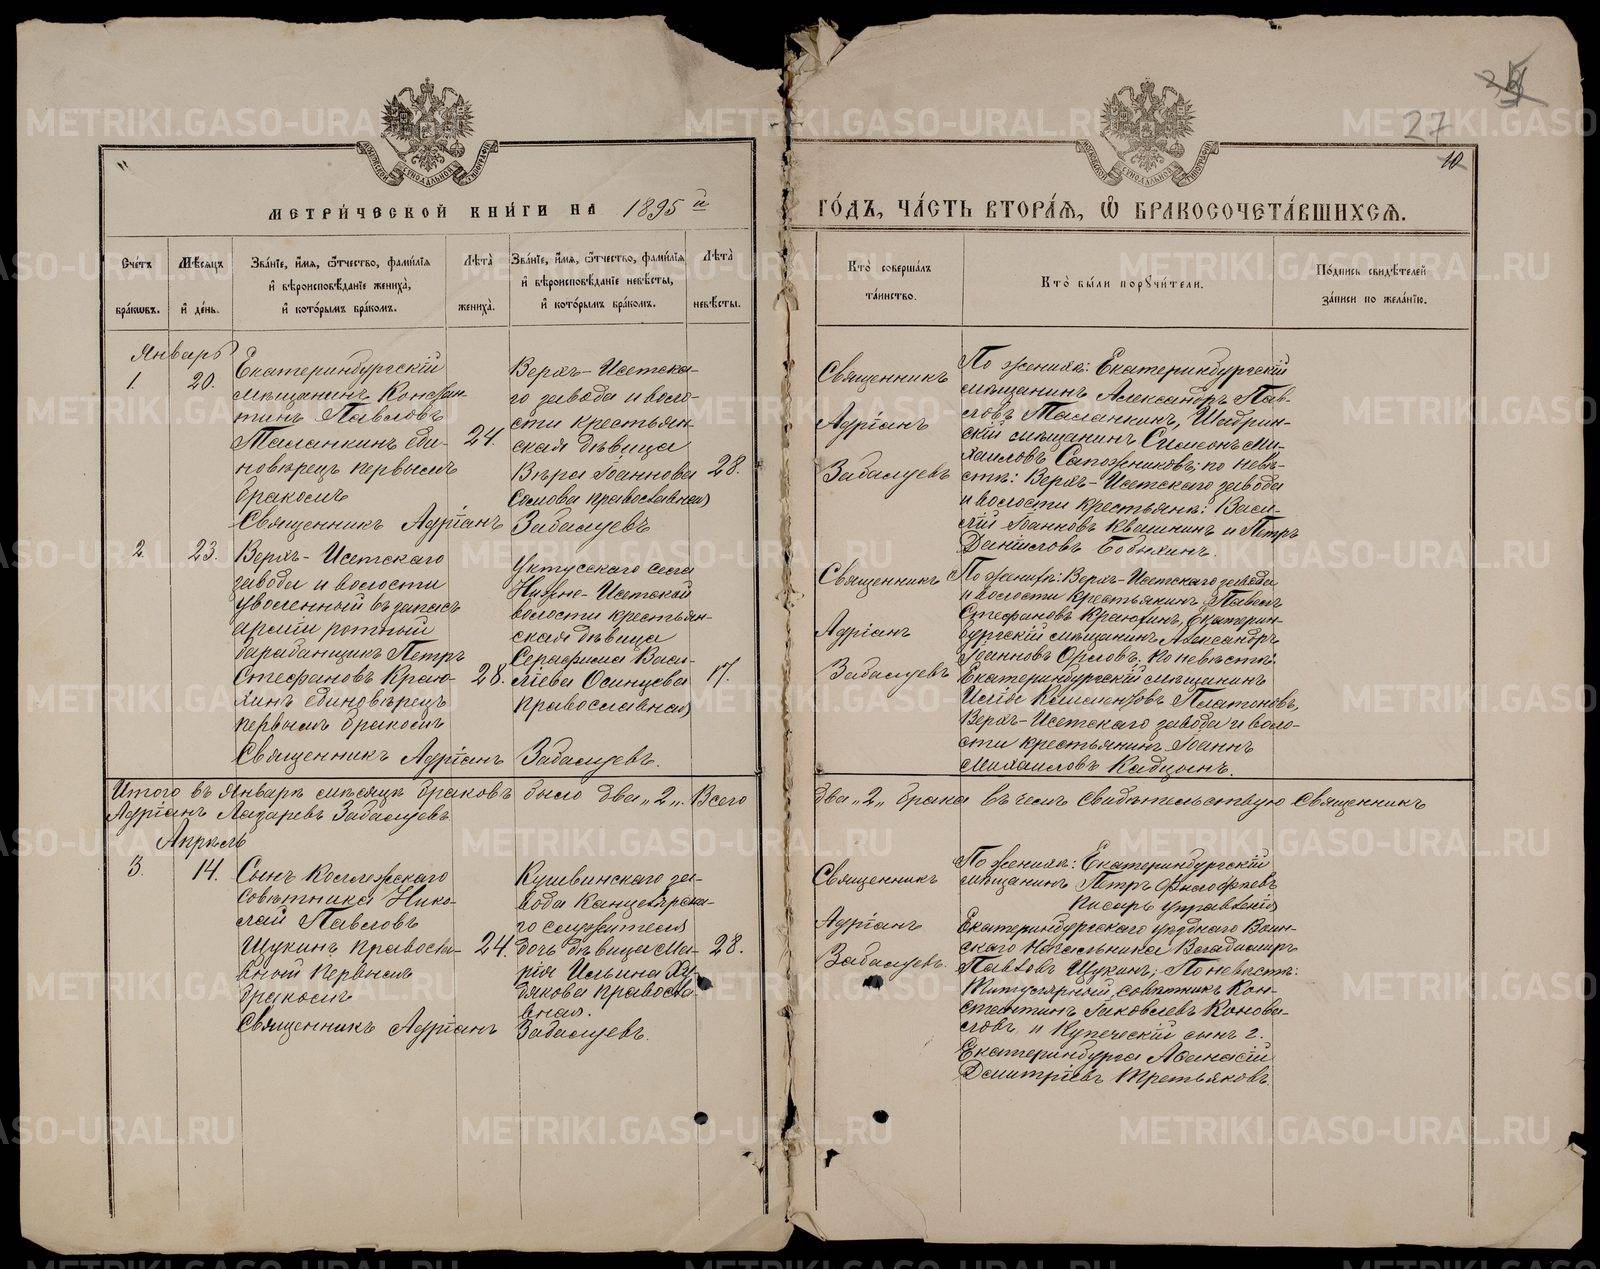 27
10
МЕТРИ́ЧЕСКОЙ КНИ́ГИ НА 1895 й
ГО́ДЪ, ЧА́СТЬ ВТОРА́Я, Ѿ БРАКОСОЧЕТА́ВШИХСЯ.
Сче́тъ бра́ковъ.
Мѣ́сяцъ и҆ де́нь.
Зва́нїе, и҆́мя, ѻ҆́тчество, фами́лїя
и҆ вѣроисповѣ́данїе жениха̀,
и҆ кото́рымъ бра́комъ.
Лѣ́та жениха̀.
Зва́нїе, и҆́мя, ѻ҆́тчество, фами́лїя
и҆ вѣроисповѣ́данїе невѣ́сты,
и҆ кото́рымъ бра́комъ.
Лѣ́та невѣ́сты.
Кто̀ соверша́лъ
та́инство.
Кто̀ бы́ли порꙋчи́тели.
По́дпись свидѣ́телей
за́писи по жела́нїю.
Январь
1.
20.
Екатеринбургскій
мѣщанинъ Констан
тинъ Павловъ
Таланкинъ еди-
новѣрецъ первымъ
бракомъ
24.
Верхъ-Исетска-
го завода и воло-
сти крестьян-
ская дѣвица
Вѣра Іоаннова
Сомова православная
28.
Священникъ Адріанъ Забалуевъ
Священникъ
Адріанъ
Забалуевъ
По женихѣ: Екатеринбургскій
мѣщанинъ Александръ Пав-
ловъ Таланкинъ, Шадрин-
скій мѣщанинъ Симеонъ Ми-
хаиловъ Сапожниковъ; по невѣ-
стѣ: Верхъ-Исетскаго завода
и волости крестьяне: Васи-
лій Іоанновъ Квашнинъ и Петръ
Даніиловъ Бобыкинъ.
2.
23.
Верхъ-Исетскаго
завода и волости
уволенный въ запасъ
арміи ротный
барабанщикъ Петръ
Стефановъ Краю-
хинъ единовѣрецъ
первымъ бракомъ
28.
Уктусскаго села
Нижне-Исетской
волости крестьян-
ская дѣвица
Серафима Васи-
ліева Осинцева
православная
17.
Священникъ Адріанъ Забалуевъ.
Священникъ
Адріанъ
Забалуевъ
По женихѣ: Верхъ-Исетскаго завода
и волости крестьянинъ Павелъ
Стефановъ Краюхинъ, Екатерин-
бургскій мѣщанинъ Александръ
Іоанновъ Орловъ; по невѣстѣ:
Екатеринбургскій мѣщанинъ
Илія Климентовъ Платоновъ,
Верхъ-Исетскаго завода и воло-
сти крестьянинъ Іоаннъ
Михаиловъ Кабцынъ.
Итого въ Январѣ мѣсяцѣ браковъ было два „2„. Всего два „2„ брака въ чемъ свидѣтельствую священникъ
Адріанъ Лазаревъ Забалуевъ
Апрѣль
3.
14.
Сынъ Коллежскаго
совѣтника Нико-
лай Павловъ
Щукинъ правосла-
вный первымъ
бракомъ
24.
Кушвинскаго за-
вода Канцелярска-
го служителя
дочь дѣвица Ма-
рія Ильина Ху-
дякова правосла-
вная.
28.
Священникъ Адріанъ Забалуевъ.
Священникъ
Адріанъ
Забалуевъ.
По женихѣ: Екатеринбургскій
мѣщанинъ Петръ Филофеевъ
Писарь управленія
Екатеринбургскаго уѣзднаго Воин-
скаго Начальника Владимиръ
Павловъ Щукинъ; По невѣстѣ:
Титулярный совѣтникъ Кон-
стантинъ Яковлевъ Конова-
ловъ и купеческій сынъ г.
Екатеринбурга Аѳанасій
Дмитріевъ Третьяковъ
METRIKI.GASO-URAL.RU